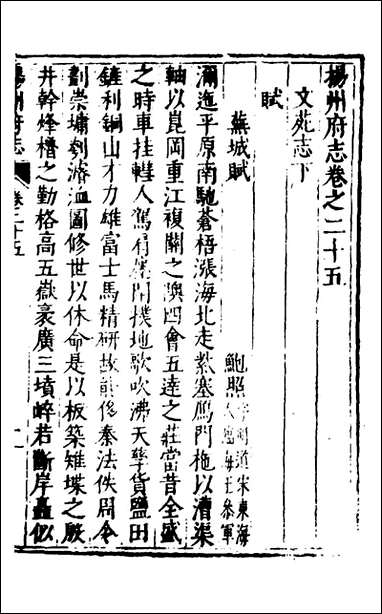 揚州府志卷之二十五
文苑志下
賦
蕪城賦
鮑照
宋東海
人臨海王參軍
瀰迤平原南馳蒼梧漲海北走紫塞鴈門柂以漕渠
軸以崑岡重江複關之隩四會五達之莊當昔全盛
之時車挂轊人駕肩閈撲地歌吹沸天孳貨鹽田
鏟利銅山才力雄富士馬精研故能侈秦法佚周令
劃崇墉刳濬洫圖修世以休命是以板築雉堞之殷
井幹烽櫓之勤格高五嶽袤廣三墳崪若斷岸矗似
揚州府志
卷二十五
一